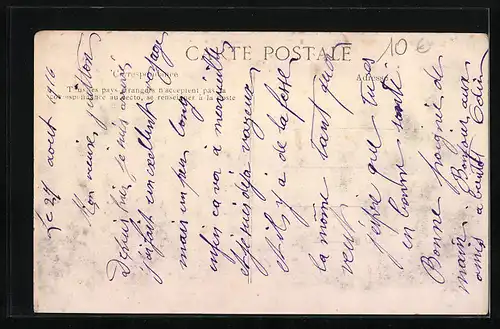 CARTE POSTALE
10 €
Correspondance
Tous les pays étrangers n'acceptent pas la
correspondance au recto, se renseigner à la poste
Adresse
Le 27 août 1916
Mon vieux
Depuis hier je suis arrivé
j'ai fait un excellent voyage
mais un peu long
enfin ça va à merveille
et je suis déjà
et il y a de la
la même tant qu'on
veut
j'espère que tu es
en bonne santé
Bonne poignée de
main. Bonjour aux
amis à bientôt